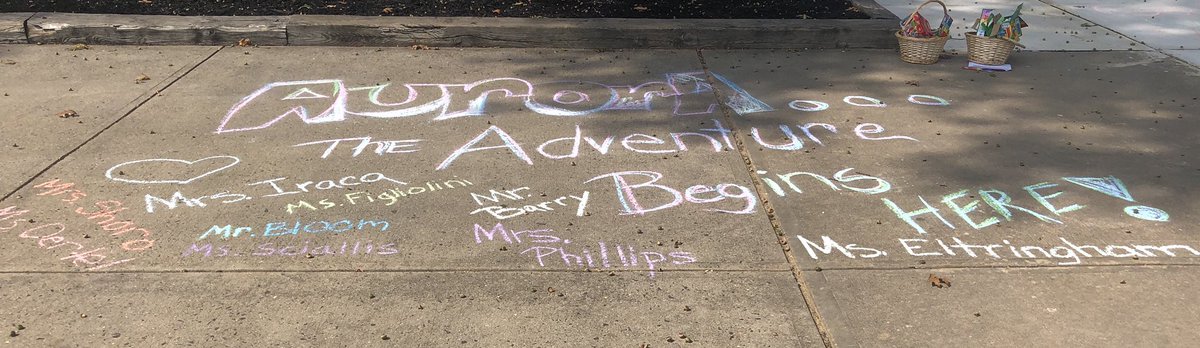 Aurora...
THE Adventure
Begins
HERE!
Mrs. Iraca
Ms. Figliolini
Mr. Bloom
Ms. Sciallis
Mr.
Barry
Mrs.
Phillips
Ms. Eltringham
Mrs. Sharo
Ms.